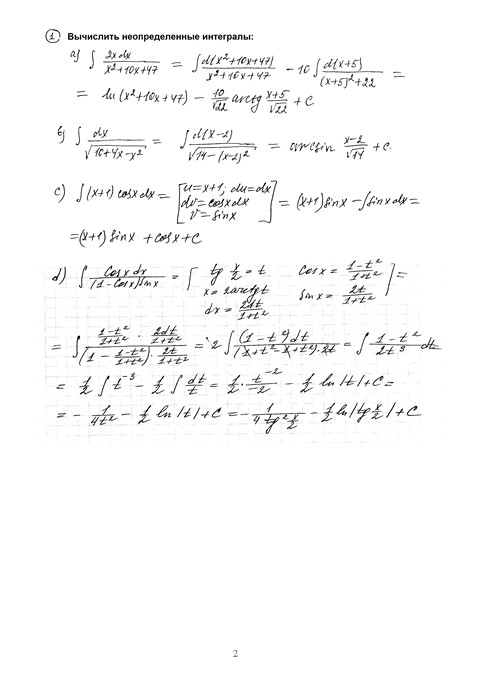 ① Вычислить неопределенные интегралы:
a) ∫ 2xdx/(x²+10x+47) = ∫ d(x²+10x+47)/(x²+10x+47) − 10∫ d(x+5)/((x+5)²+22) =
= ln(x²+10x+47) − 10/√22 arctg (x+5)/√22 + C
б) ∫ dx/√(10+4x−x²) = ∫ d(x−2)/√(14−(x−2)²) = arcsin (x−2)/√14 + C.
c) ∫(x+1)cosxdx = [u=x+1; du=dx
dv=cosxdx
v=sinx] = (x+1)sinx − ∫sinxdx =
=(x+1)sinx + cosx + C
d) ∫ Cosxdx/((1−Cosx)sinx) = ∫ [tg x/2 = t cosx = (1−t²)/(1+t²)
x = 2arctgt sinx = 2t/(1+t²)
dx = 2dt/(1+t²)] =
= ∫ ((1−t²)/(1+t²) · 2dt/(1+t²))/((1 − (1−t²)/(1+t²)) · 2t/(1+t²)) = 2∫ (1−t²)dt/((1+t²−1+t²)·2t) = ∫ (1−t²)/(2t³) dt
= 1/2 ∫ t⁻³ − 1/2 ∫ dt/t = 1/2 · t⁻²/−2 − 1/2 ln|t| + C =
= − 1/(4t²) − 1/2 ln|t| + C = − 1/(4 tg² x/2) − 1/2 ln|tg x/2| + C
2